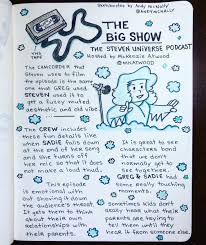 Sketchnotes by Andy McNally
@ANDYMCNALLY
VHS TAPE
THE BIG SHOW
THE STEVEN UNIVERSE PODCAST
Hosted by McKenzie Atwood
@MKATWOOD
The CAMCORDER that
Steven uses to film
the episode is the same
one that GREG used.
STEVEN used it to
get a fuzzy muted
aesthetic and old vibe
The CREW includes
these fun details like
when SADIE falls down
at the end of her song
and she turns off
her mic so that it does
not make a loud thud.
This episode
is emotional
why in
showing it down
the audience's throat.
It gets them to think
about their own
relationships with
their parents.
It is great to see
characters bond
that we don't
normally get to
see together.
GREG & SADIE had
some really touching
moments.
Sometimes kids don't
really hear what their
parents are trying to
tell them until they
hear it from someone else.